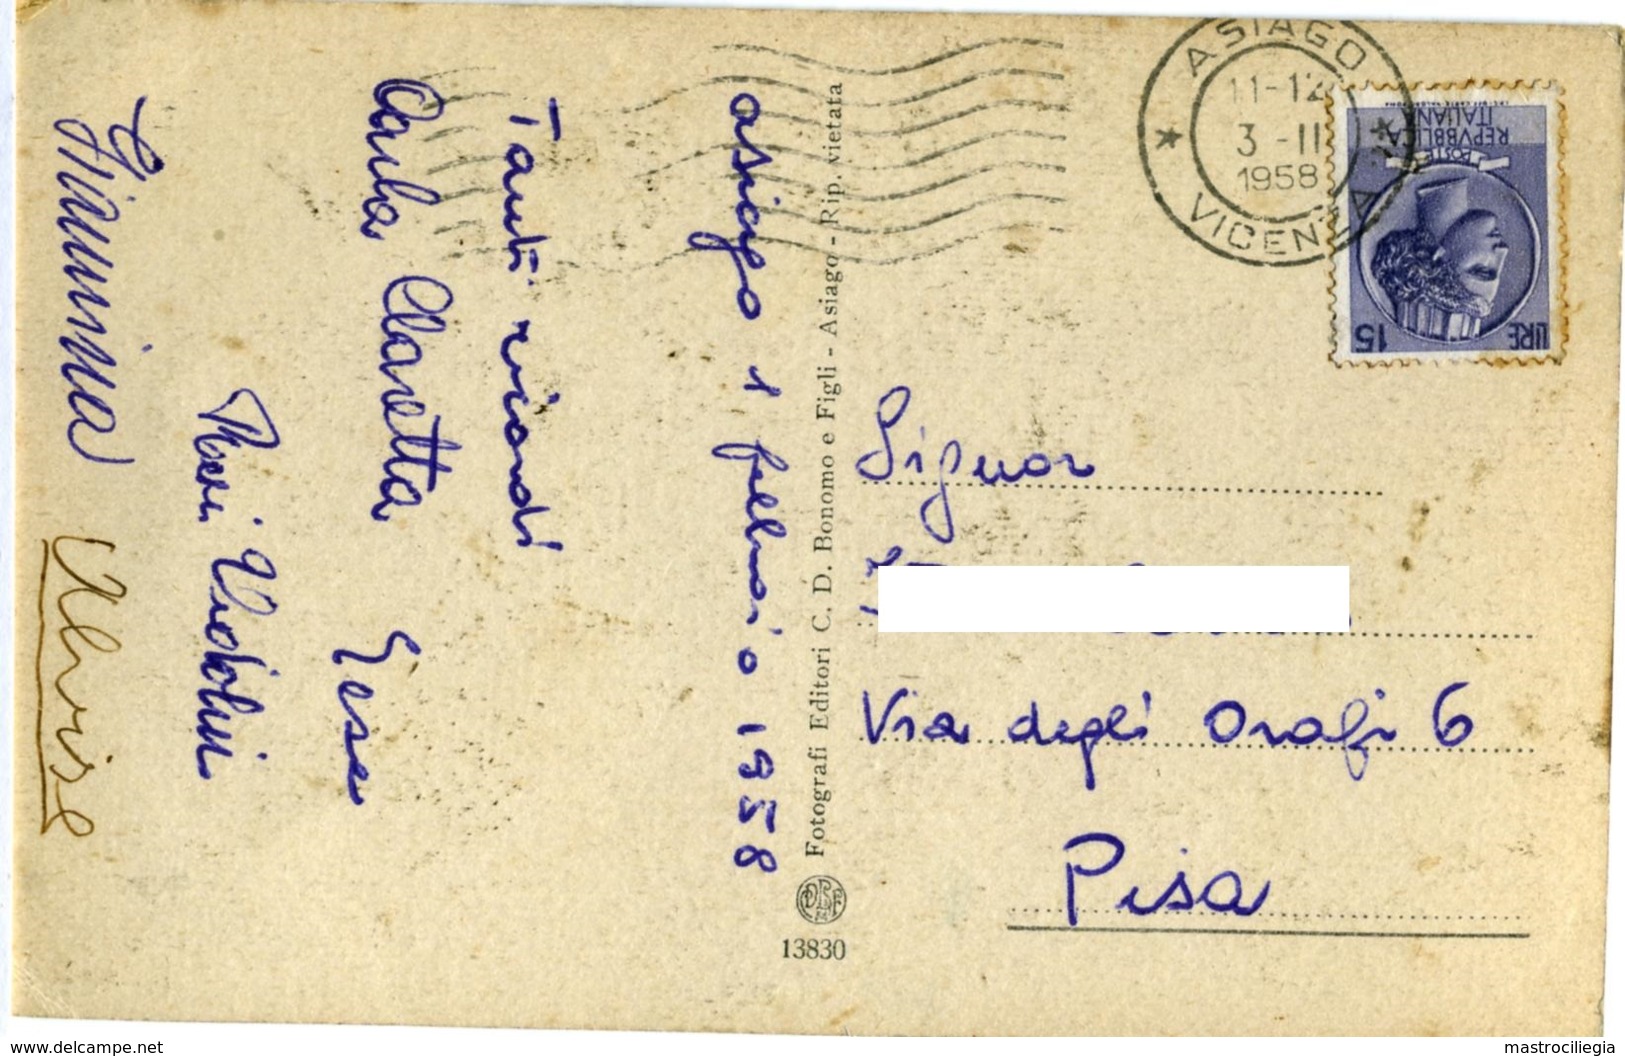 asiago 1 febbraio 1958
Tanti ricordi
Carla Claretta Gesa
Giannina Alvise
Fotografi Editori C. D. Bonomo e Figli - Asiago - Rip. vietata
13830
ASIAGO
11-12
3 - II
1958
VICENZA
REPVBBLICA
ITALIANA
POSTE
LIRE 15
Signor
Via degli Orafi 6
Pisa
www.delcampe.net
mastrociliegia